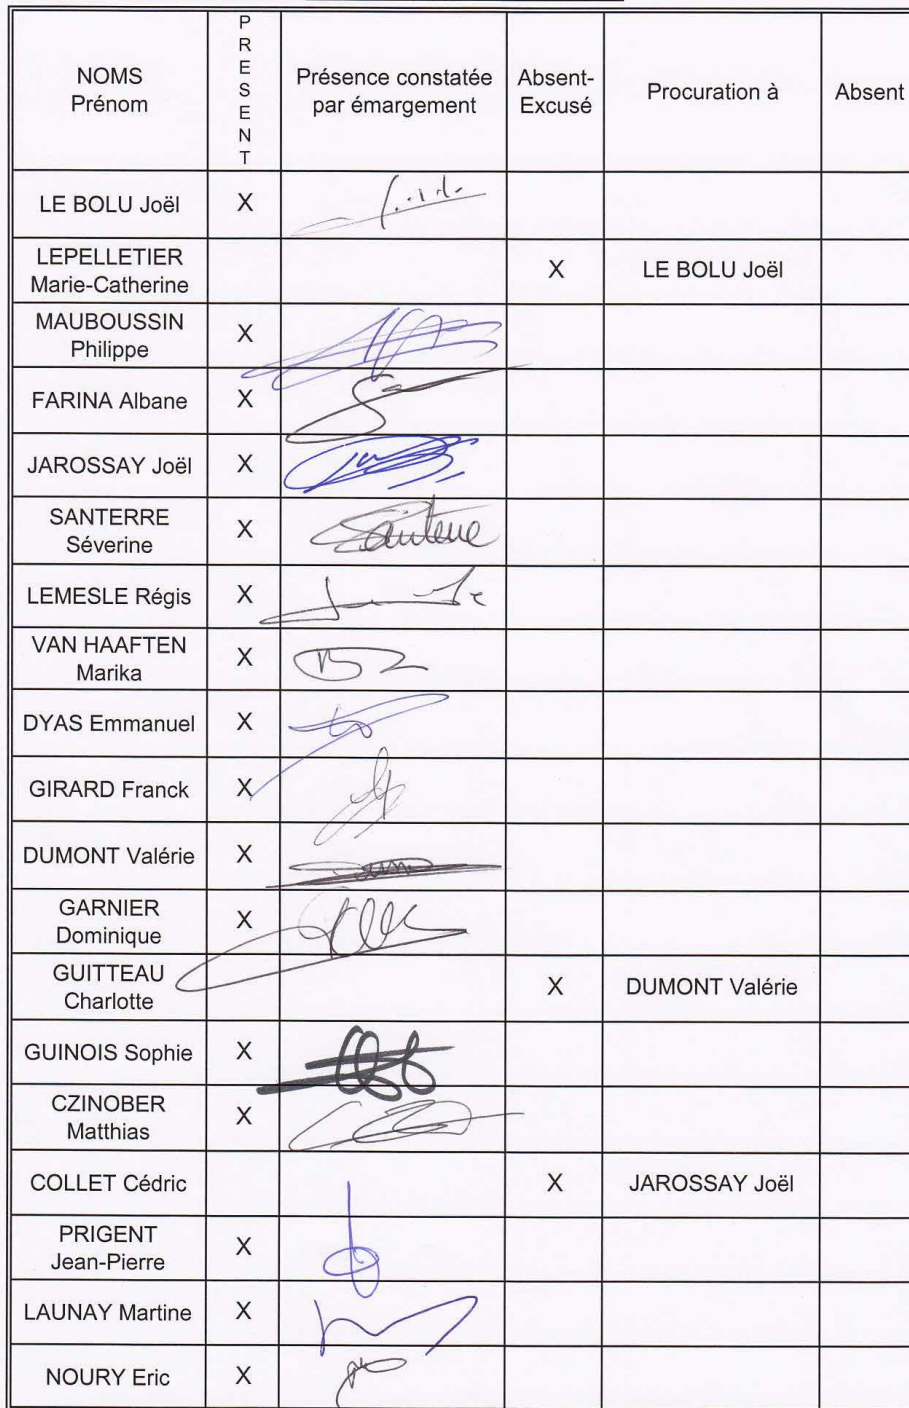 NOMS
Prénom
PRESENT
Présence constatée
par émargement
Absent-
Excusé
Procuration à
Absent
LE BOLU Joël X
LEPELLETIER
Marie-Catherine X LE BOLU Joël
MAUBOUSSIN
Philippe X
FARINA Albane X
JAROSSAY Joël X
SANTERRE
Séverine X Santerre
LEMESLE Régis X
VAN HAAFTEN
Marika X
DYAS Emmanuel X
GIRARD Franck X
DUMONT Valérie X
GARNIER
Dominique X
GUITTEAU
Charlotte X DUMONT Valérie
GUINOIS Sophie X
CZINOBER
Matthias X
COLLET Cédric X JAROSSAY Joël
PRIGENT
Jean-Pierre X
LAUNAY Martine X
NOURY Eric X